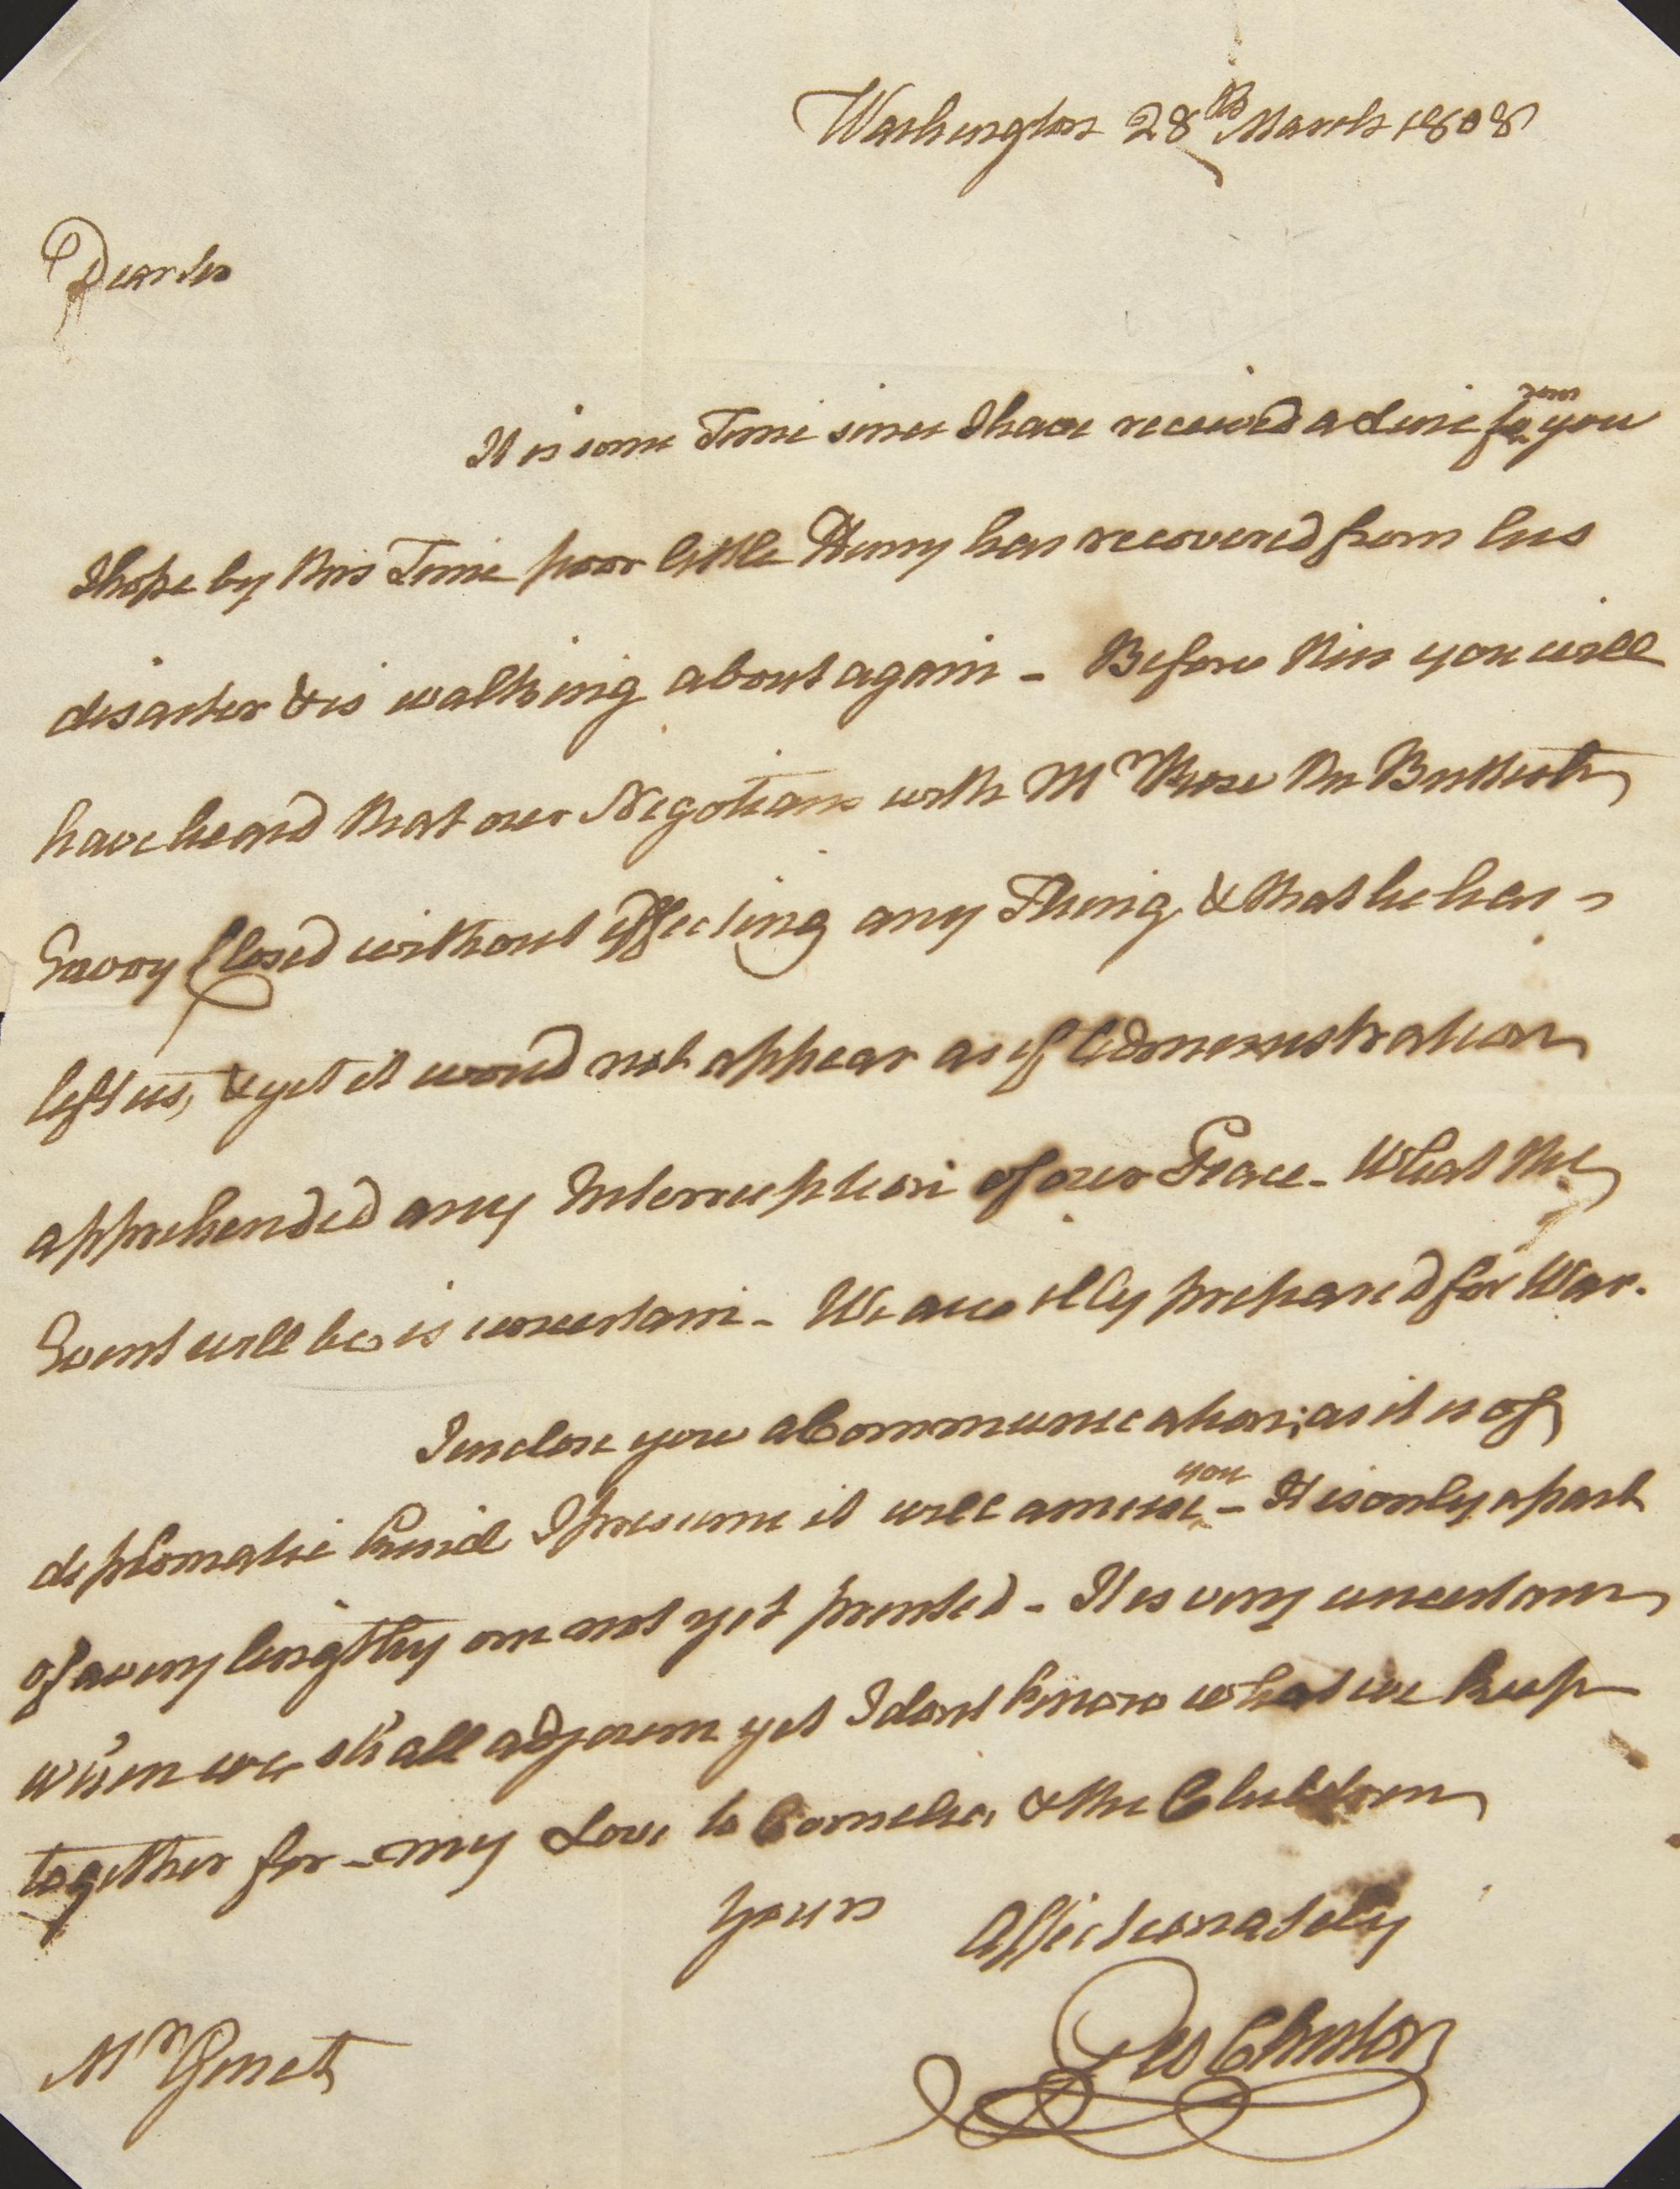 Washington 28th March 1808
Dear Sir
It is some Time since I have received a Line from you
I hope by this Time poor little Henry has recovered from his
disaster & is walking about again - Before this you will
have heard that our Negotians with Mr Rose the British
Envoy Closed without effecting any Thing & that he has -
left us, & yet it would not appear as if Administration
apprehended any Interruption of our Peace - What the
Event will be is uncertain - We are illy prepared for War.
I enclose you a Communication; as it is of
diplomatic kind I presume it will amuse you - It is only a part
of a very lengthy one not yet printed - It is very uncertain
when we shall adjourn yet I dont know what we keep
together for - my Love to Cornelia & the Children
Yours Affectionately
Geo Clinton
Mr Genet